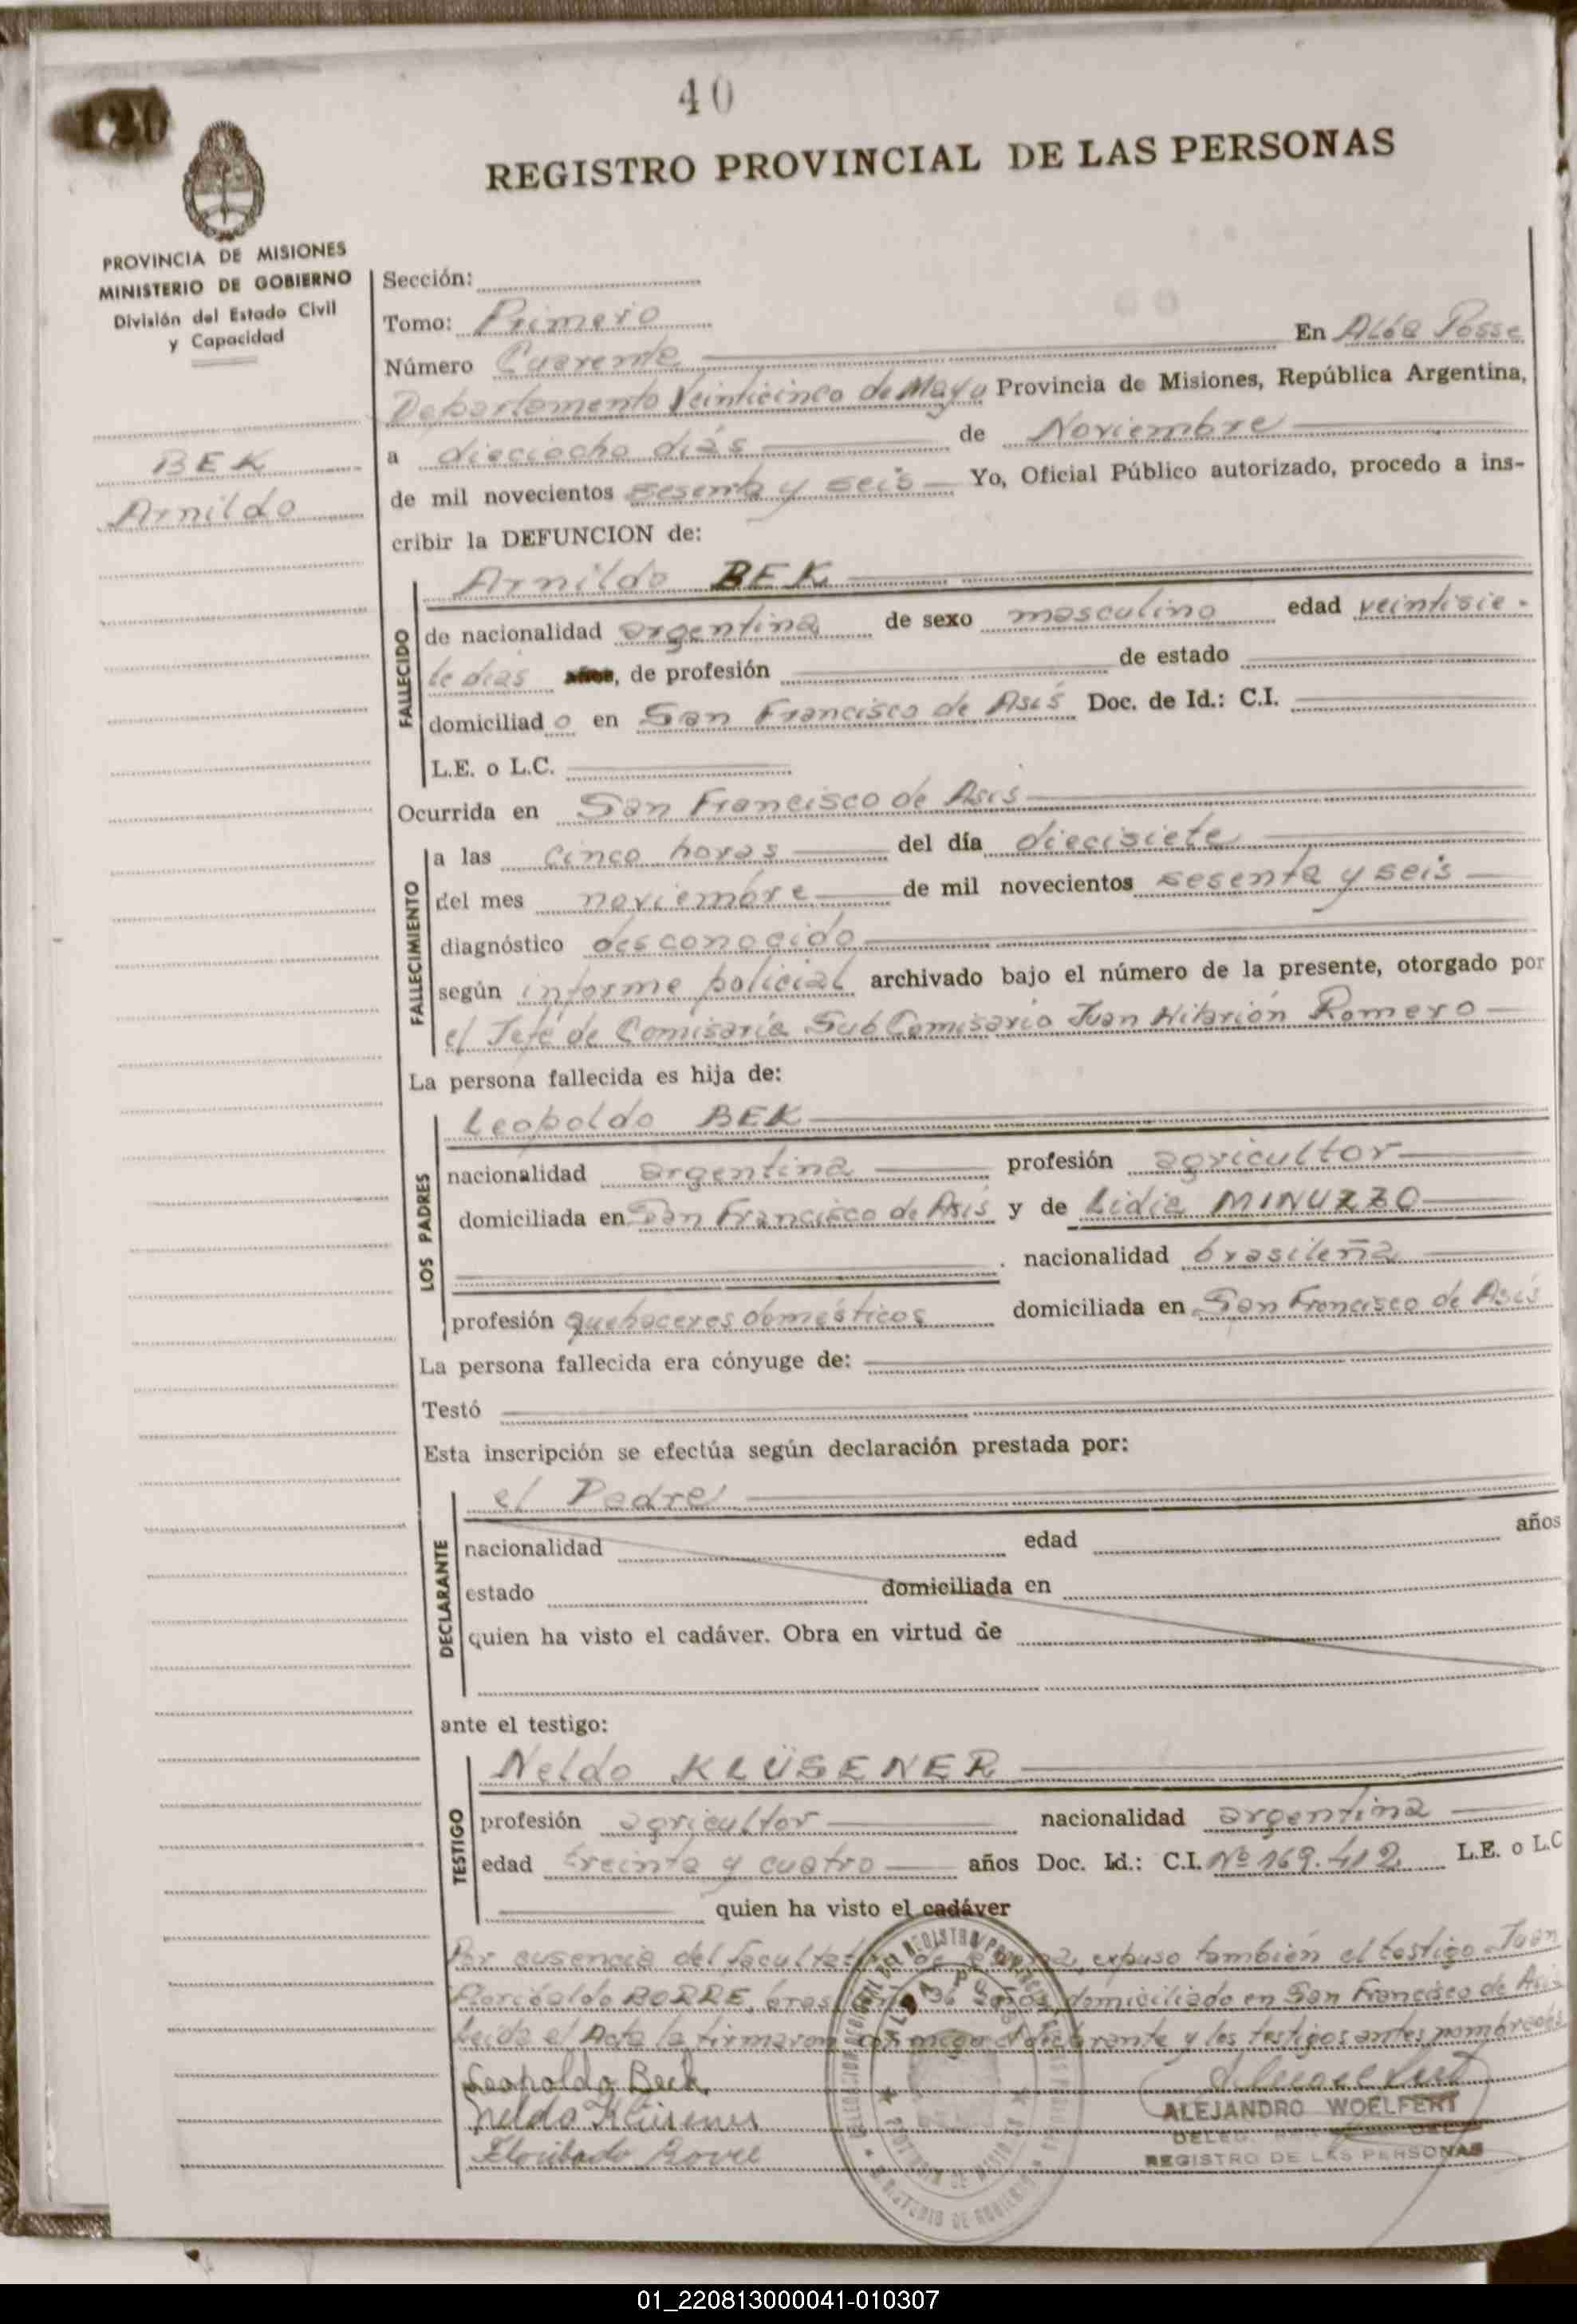 40
120
REGISTRO PROVINCIAL DE LAS PERSONAS
PROVINCIA DE MISIONES
MINISTERIO DE GOBIERNO
División del Estado Civil
y Capacidad
BEK
Arnildo
Sección:
Tomo: Primero
Número Cuarenta En Alba Posse
Departamento Veinticinco de Mayo Provincia de Misiones, República Argentina,
a dieciocho días de Noviembre
de mil novecientos sesenta y seis Yo, Oficial Público autorizado, procedo a ins-
cribir la DEFUNCION de:
FALLECIDO
Arnildo BEK
de nacionalidad argentina de sexo masculino edad veintisie-
te días años, de profesión de estado
domiciliado en San Francisco de Asís Doc. de Id.: C.I.
L.E. o L.C.
Ocurrida en San Francisco de Asís
FALLECIMIENTO
a las cinco horas del día diecisiete
del mes noviembre de mil novecientos sesenta y seis
diagnóstico desconocido
según informe policial archivado bajo el número de la presente, otorgado por
el Jefe de Comisaría SubComisario Juan Hilarión Romero
La persona fallecida es hija de:
LOS PADRES
Leopoldo BEK
nacionalidad argentina profesión agricultor
domiciliada en San Francisco de Asís y de Lidia MINUZZO
. nacionalidad brasileña
profesión quehaceres domésticos domiciliada en San Francisco de Asís
La persona fallecida era cónyuge de:
Testó
Esta inscripción se efectúa según declaración prestada por:
DECLARANTE
el Padre
nacionalidad edad años
estado domiciliada en
quien ha visto el cadáver. Obra en virtud de
ante el testigo:
TESTIGO
Neldo KLÜSENER
profesión agricultor nacionalidad argentina
edad treinta y cuatro años Doc. Id.: C.I. Nº 169.412 L.E. o L.C
quien ha visto el cadáver
Por ausencia del facultativo de expuso también el testigo Juan
Floribaldo BORRE, 36 años, domiciliado en San Francisco de Asís
Leída el Acta la firmaron conmigo el declarante y los testigos antes nombrados
Leopoldo Beck
Neldo Klüsener
Floribaldo
ALEJANDRO WOELFERT
REGISTRO DE LAS PERSONAS
01_220813000041-010307